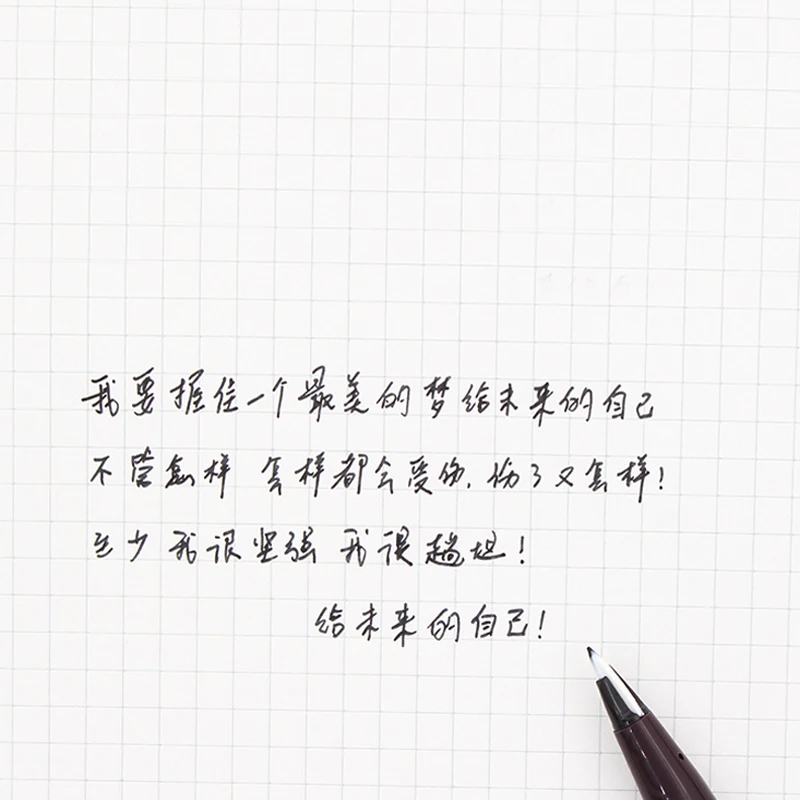 我要握住一个最美的梦给未来的自己
不管怎样 怎样都会受伤，伤了又怎样！
至少我很坚强 我很趟坦！
给未来的自己！